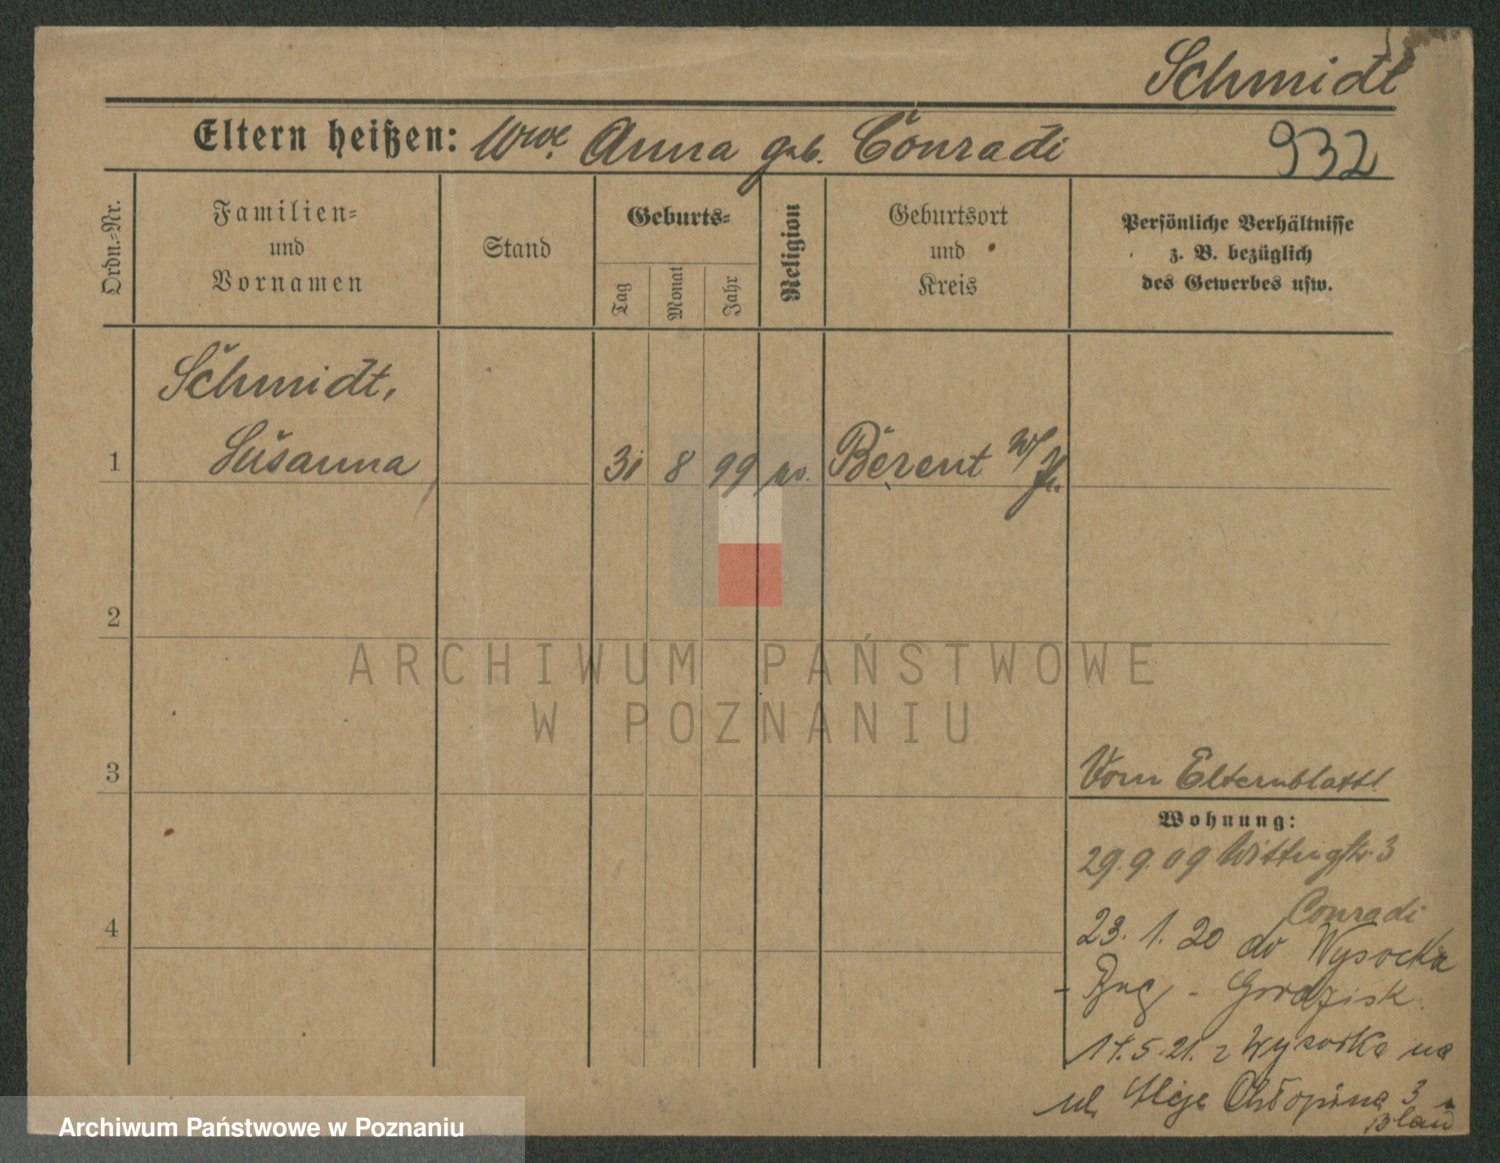 Schmidt
Eltern heißen: Wwe. Anna geb. Conradi
932
Ordn.-Nr.
Familien=
und
Vornamen
Stand
Geburts=
Tag
Monat
Jahr
Religion
Geburtsort
und
Kreis
Persönliche Verhältnisse
z. B. bezüglich
des Gewerbes usw.
Schmidt,
1 Susanna 31 8 99 Berent W/
2
ARCHIWUM PAŃSTWOWE
W POZNANIU
3
Vom Elternblatt!
Wohnung:
29.9.09 3
Conradi
4
23. 1. 20 do Wysocka
Grodzisk
17.5.21. z Wysocka na
ul. Aleje Chłopina 3
Archiwum Państwowe w Poznaniu